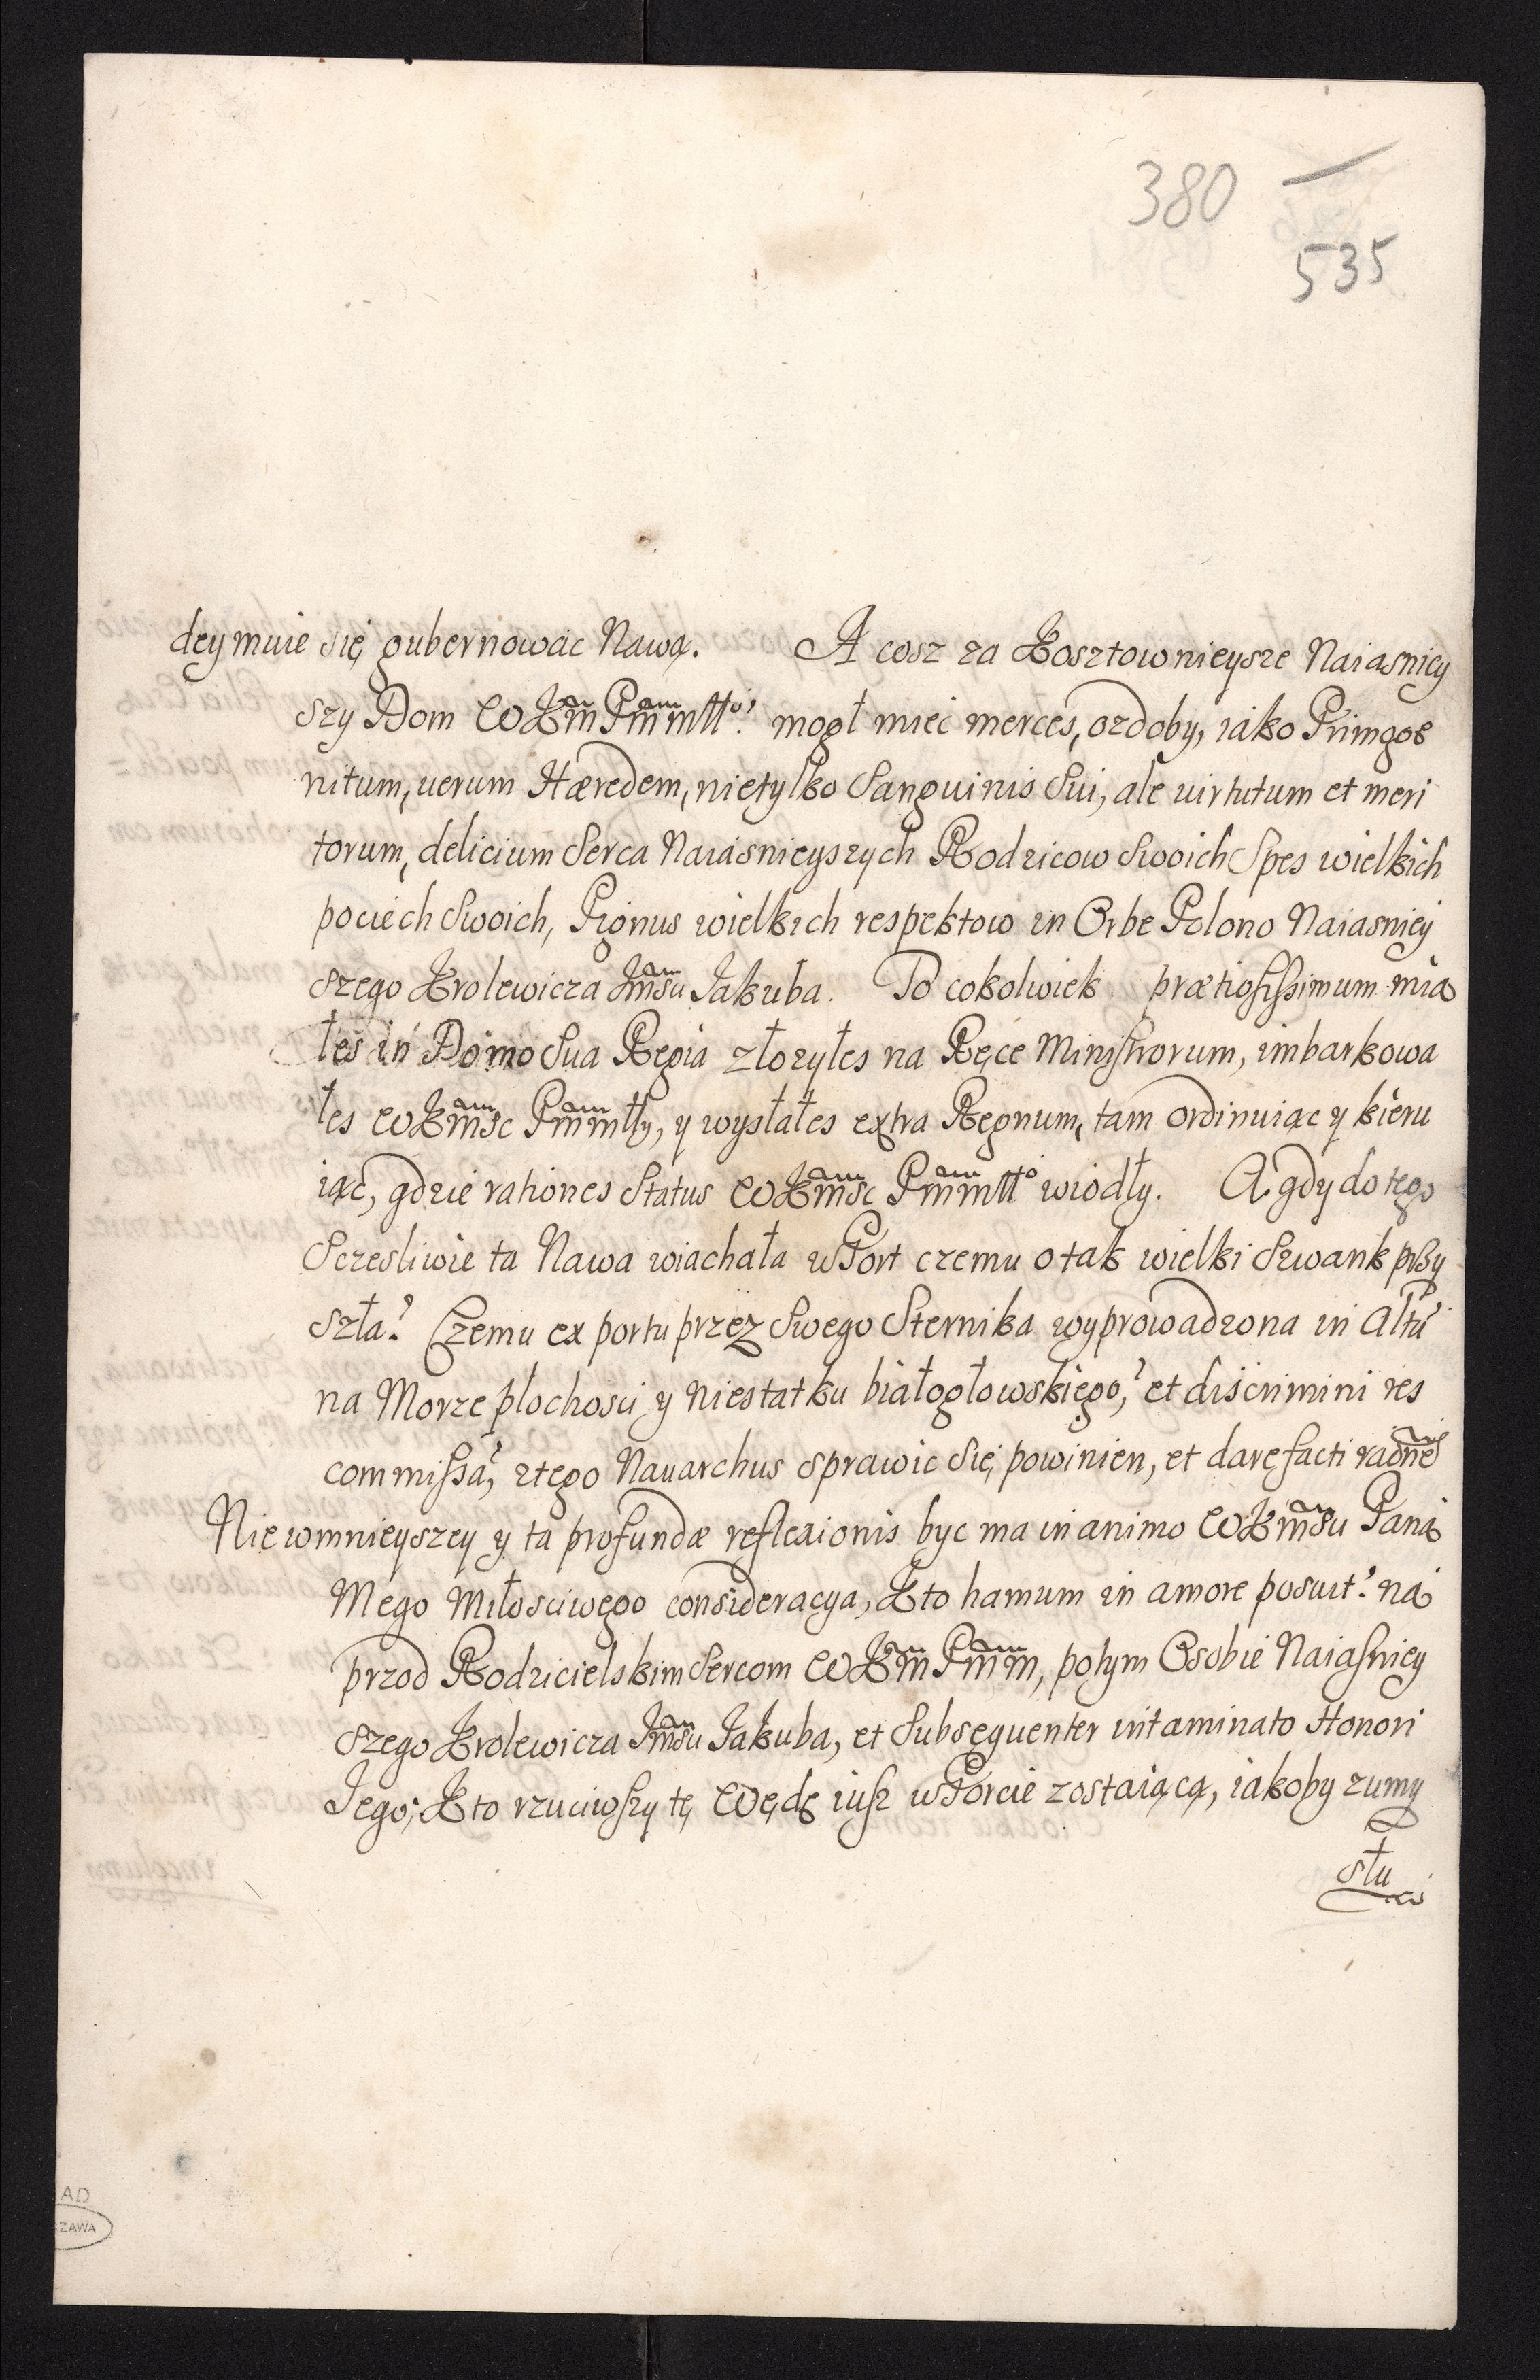 380
535
deymuie się gubernowac Nawą. A cosz za Kosztownieysze Naiasniey
szy Dom WKm Pmmtto? mogł miec merces, ozdoby, iako Primgoe
nitum, uerum Hæredem, nietylko Sanguinis Sui, ale uirtutum et meri
torum, delicium Serca Naiasnieyszych Rodzicow Swoich Spes wielkich
pociech Swoich, Pignus wielkich respektow in Orbe Polono Naiasniey
szego Krolewicza Jmsu Jakuba. To cokolwiek prætiosissimum mia
łes in Domo Sua Regia złozyłes na Ręce Ministrorum, imbarkowa
łes WKmsc Pmmtty, y wysłałes extra Regnum, tam ordinuiąc y kieru
iąc, gdzie rationes Status WKmsc Pmmtto wiodły. A gdy do tego
Sczesliwie ta Nawa wiachała w Port czemu o tak wielki Szwank przy
szła? Czemu ex portu przez Swego Sternika wyprowadzona in Altu
na Morze płochosci y niestatku białogłowskiego,? et discrimini res
commissa,? ztego Nauarchus sprawic się powinien, et dare facti raones
Niewomnieyszey y ta profundæ reflexionis byc ma in animo WKmsu Pana
Mego Miłosciwego consideracya, Kto hamum in amore posuit? na
przod Rodzicielskim Sercom WKm Pmm, potym Osobie Naiasniey
szego Krolewicza Jmsu Jakuba, et Subsequenter intaminato Honori
Jego; Kto rzuciwszy tę Wędę iusz w Porcie zostaiącą, iakoby zumy
słu
AD
SZAWA